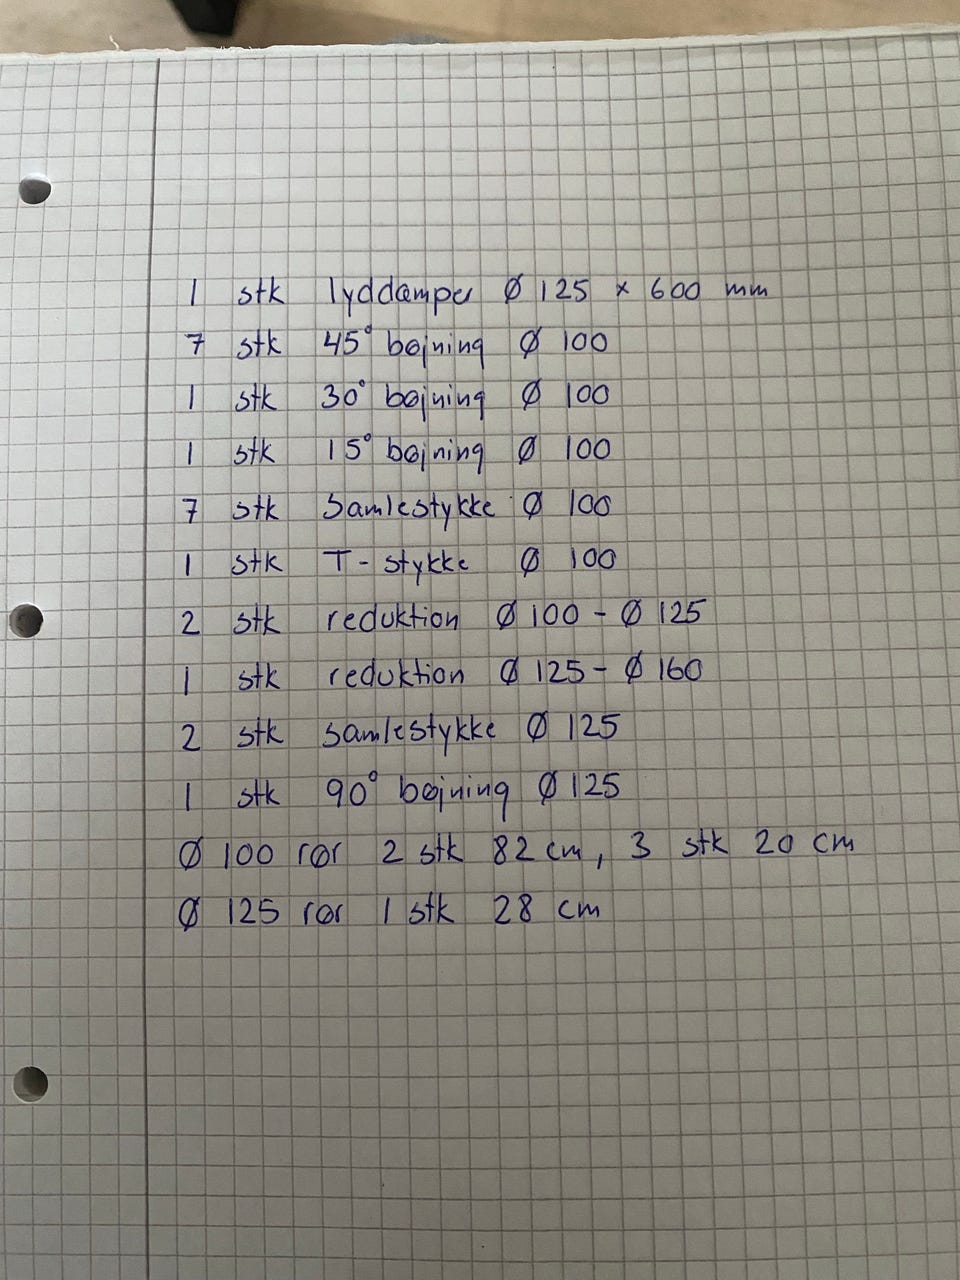 1 stk lyddæmper Ø 125 x 600 mm
7 stk 45° bøjning Ø 100
1 stk 30° bøjning Ø 100
1 stk 15° bøjning Ø 100
7 stk Samlestykke Ø 100
1 stk T-stykke Ø 100
2 stk reduktion Ø 100 - Ø 125
1 stk reduktion Ø 125 - Ø 160
2 stk samlestykke Ø 125
1 stk 90° bøjning Ø 125
Ø 100 rør 2 stk 82 cm, 3 stk 20 cm
Ø 125 rør 1 stk 28 cm